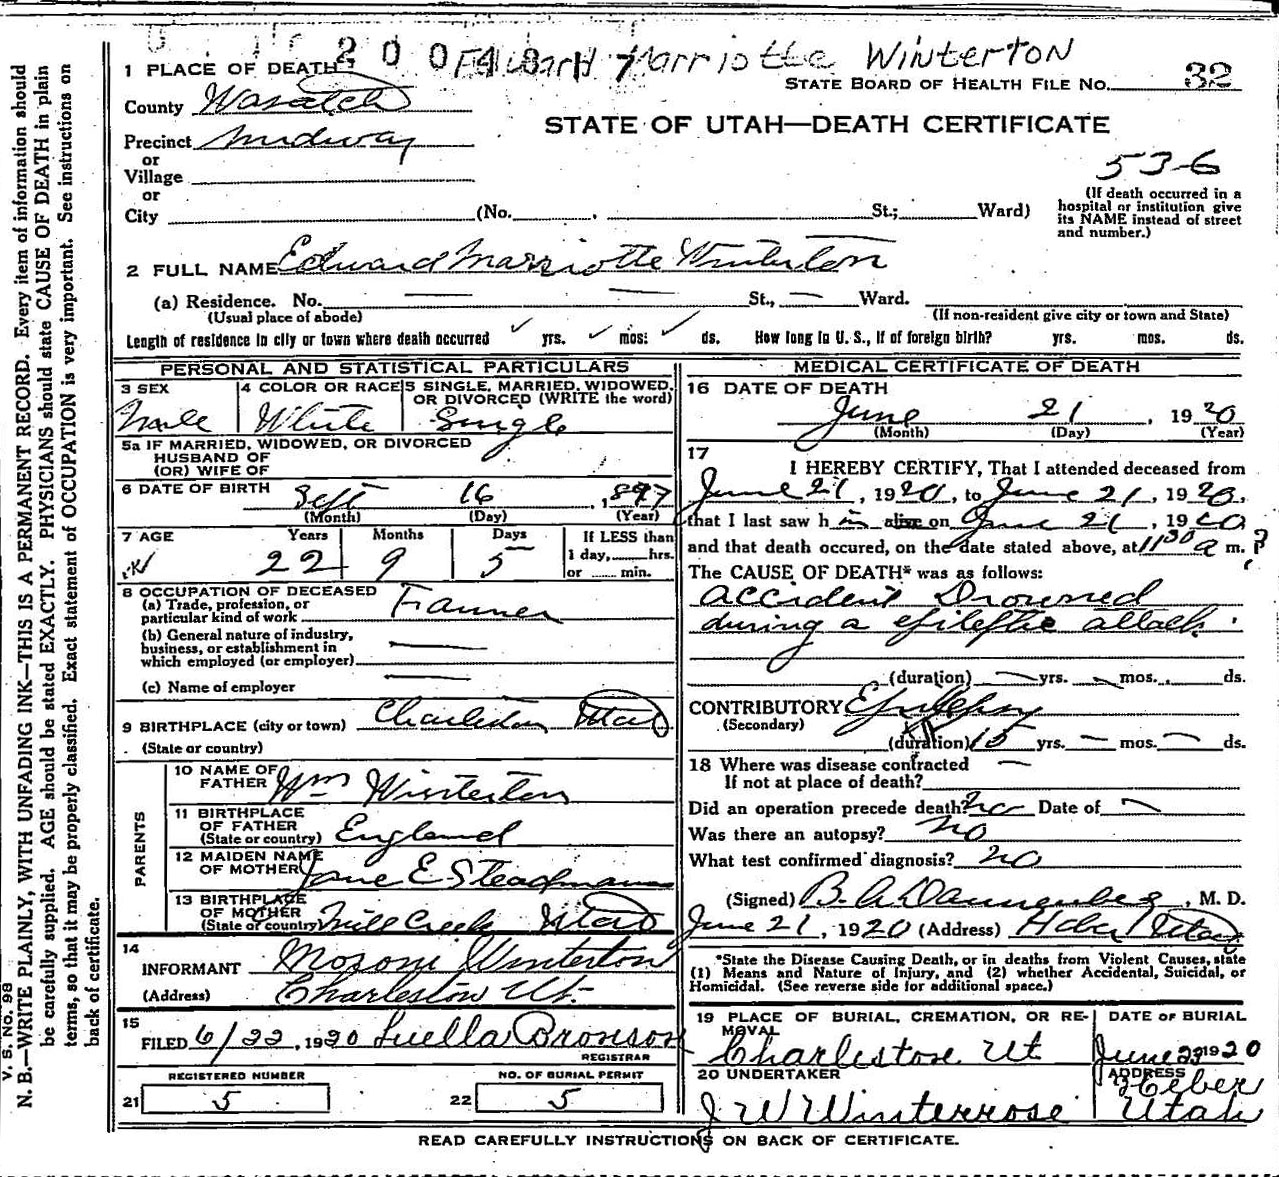 2004817
Edward Marriotte Winterton
1 PLACE OF DEATH
STATE BOARD OF HEALTH FILE NO. 32
County Wasatch
STATE OF UTAH—DEATH CERTIFICATE
Precinct Midway
or
Village
or
City (No. , St.; Ward)
536
(If death occurred in a
hospital or institution give
its NAME instead of street
and number.)
2 FULL NAME Edward Marriotte Winterton
(a) Residence. No. — — St., — Ward.
(Usual place of abode)
(If non-resident give city or town and State)
Length of residence in city or town where death occurred ✓ yrs. ✓ mos. ✓ ds. How long in U. S., if of foreign birth? yrs. mos. ds.
PERSONAL AND STATISTICAL PARTICULARS
3 SEX
Male
4 COLOR OR RACE
White
5 SINGLE, MARRIED, WIDOWED,
OR DIVORCED (WRITE the word)
Single
5a IF MARRIED, WIDOWED, OR DIVORCED
HUSBAND OF
(OR) WIFE OF
6 DATE OF BIRTH Sept 16, 1897
(Month) (Day) (Year)
7 AGE Years Months Days
22 9 5
If LESS than
1 day, hrs.
or min.
8 OCCUPATION OF DECEASED
(a) Trade, profession, or
particular kind of work Farmer
(b) General nature of industry,
business, or establishment in
which employed (or employer) —
(c) Name of employer —
9 BIRTHPLACE (city or town) Charleston Utah
(State or country)
PARENTS
10 NAME OF
FATHER Wm Winterton
11 BIRTHPLACE
OF FATHER
(State or country) England
12 MAIDEN NAME
OF MOTHER Jane E Steadman
13 BIRTHPLACE
OF MOTHER
(State or country) Mill Creek Utah
14
INFORMANT Moroni Winterton
(Address) Charleston Ut.
15
FILED 6/22, 1920 Luella Bronson
REGISTRAR
REGISTERED NUMBER
21 5
NO. OF BURIAL PERMIT
22 5
MEDICAL CERTIFICATE OF DEATH
16 DATE OF DEATH
June 21, 1920
(Month) (Day) (Year)
17
I HEREBY CERTIFY, That I attended deceased from
June 21, 1920, to June 21, 1920,
that I last saw him alive on June 21, 1920,
and that death occured, on the date stated above, at 11 30 a m. ?
The CAUSE OF DEATH* was as follows:
accident Drowned
during a epileptic attack.
(duration) — yrs. — mos. ds.
CONTRIBUTORY Epilepsy
(Secondary)
(duration) 15 yrs. — mos. — ds.
18 Where was disease contracted —
If not at place of death?
Did an operation precede death? no Date of —
Was there an autopsy? no
What test confirmed diagnosis? no
(Signed) B. A. Dannenberg, M. D.
June 21, 1920 (Address) Heber Utah
*State the Disease Causing Death, or in deaths from Violent Causes, state
(1) Means and Nature of Injury, and (2) whether Accidental, Suicidal, or
Homicidal. (See reverse side for additional space.)
19 PLACE OF BURIAL, CREMATION, OR RE-
MOVAL
Charleston Ut
DATE OF BURIAL
June 23 1920
20 UNDERTAKER
J W Winterrose
ADDRESS
Heber
Utah
READ CAREFULLY INSTRUCTIONS ON BACK OF CERTIFICATE.
V. S. NO. 98
N. B.—WRITE PLAINLY, WITH UNFADING INK—THIS IS A PERMANENT RECORD. Every item of information should
be carefully supplied. AGE should be stated EXACTLY. PHYSICIANS should state CAUSE OF DEATH in plain
terms, so that it may be properly classified. Exact statement of OCCUPATION is very important. See instructions on
back of certificate.